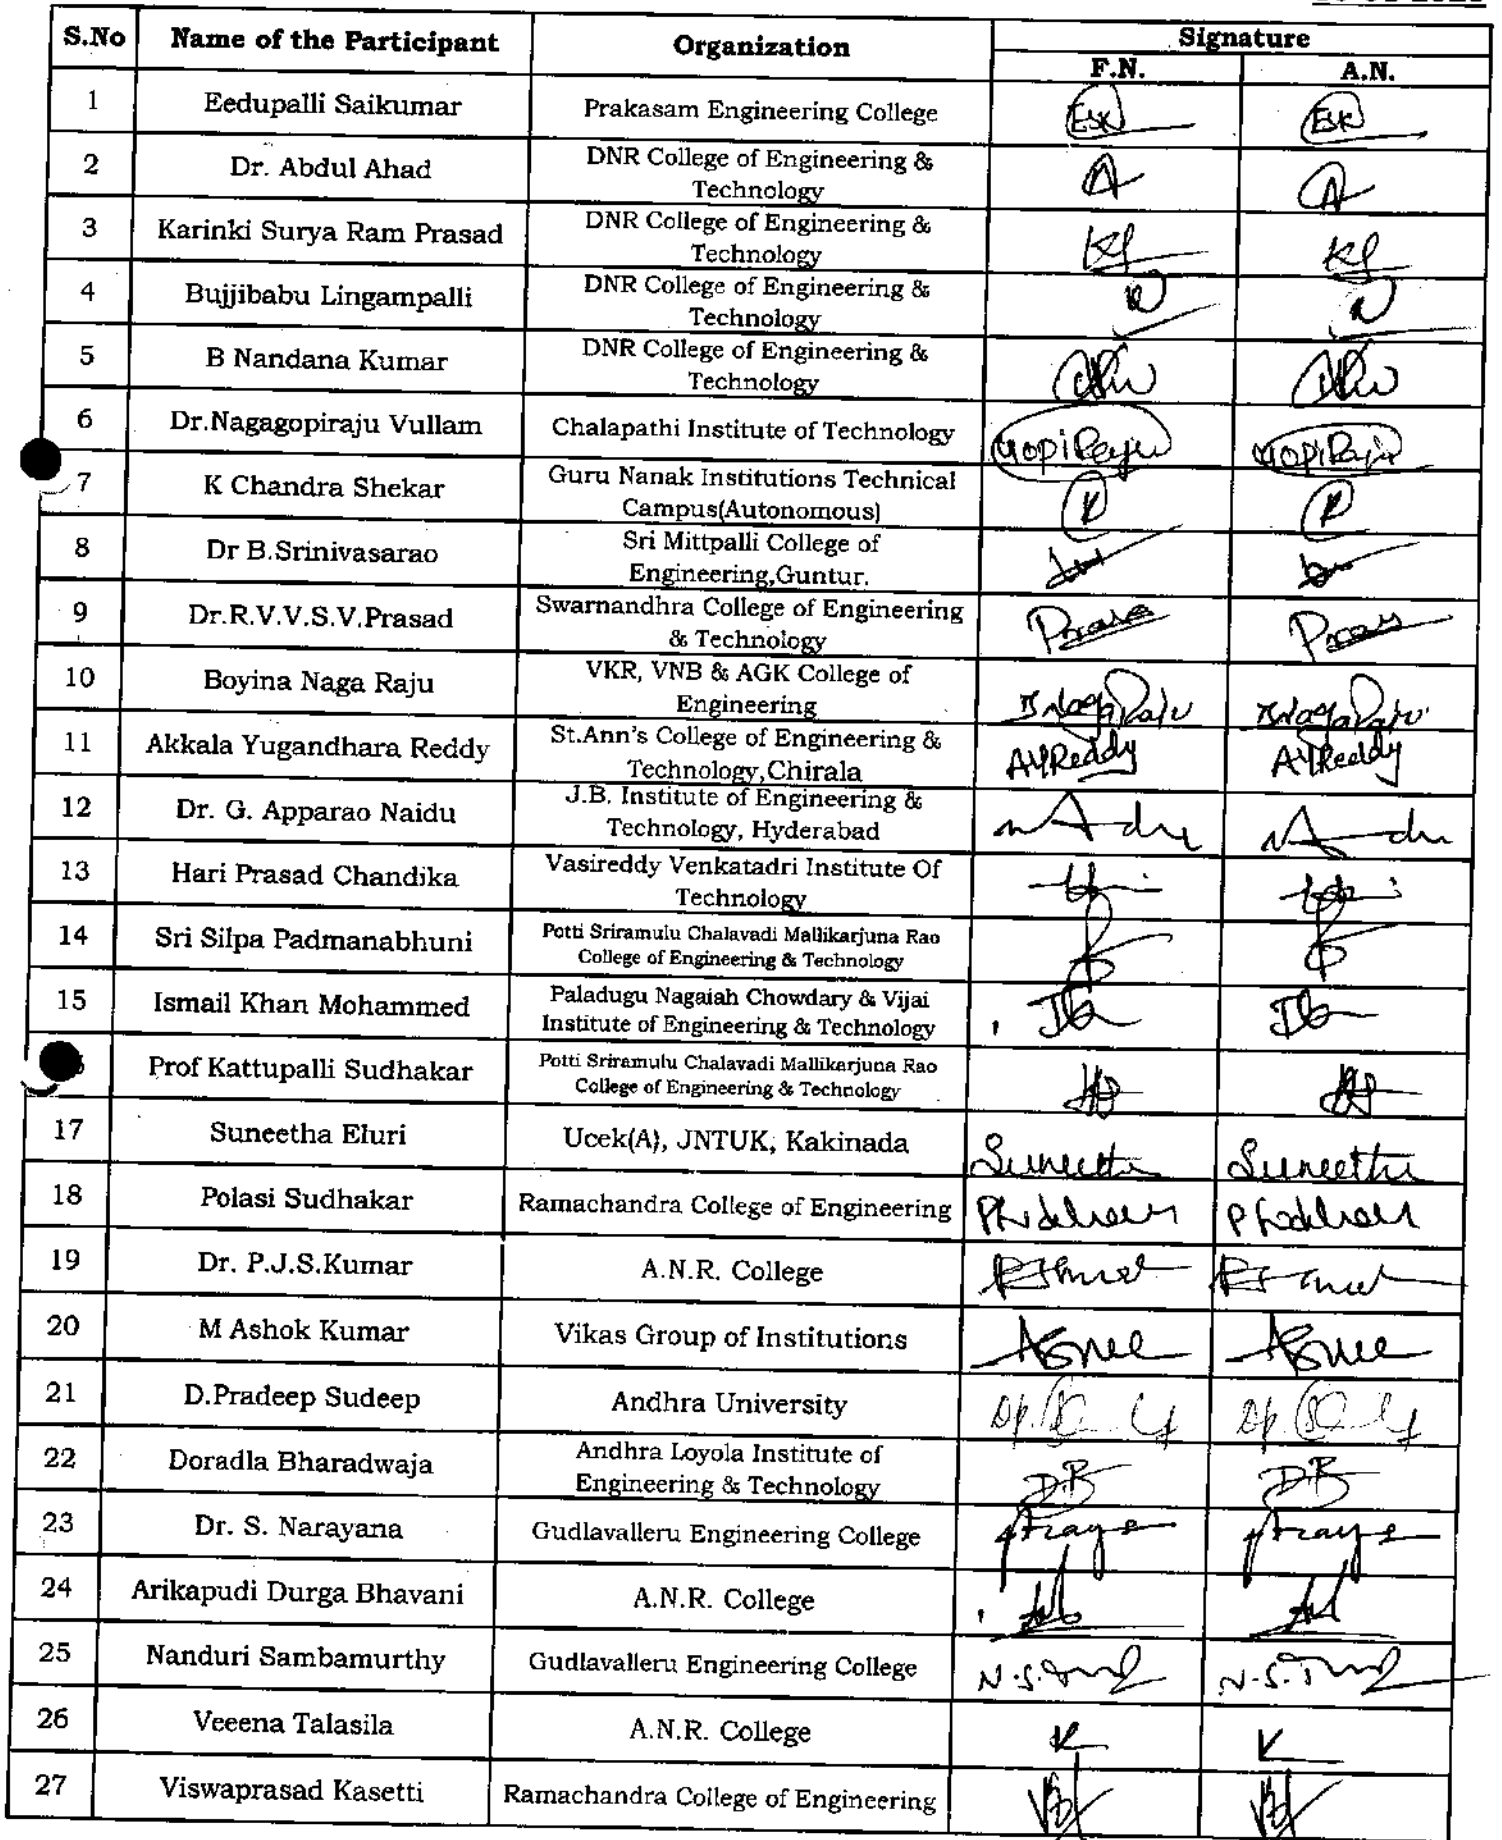 S.No Name of the Participant Organization Signature
F.N. A.N.
1 Eedupalli Saikumar Prakasam Engineering College ESK ESK
2 Dr. Abdul Ahad DNR College of Engineering &
Technology
3 Karinki Surya Ram Prasad DNR College of Engineering &
Technology
4 Bujjibabu Lingampalli DNR College of Engineering &
Technology
5 B Nandana Kumar DNR College of Engineering &
Technology
6 Dr.Nagagopiraju Vullam Chalapathi Institute of Technology GopiRaju GopiRaju
7 K Chandra Shekar Guru Nanak Institutions Technical
Campus(Autonomous)
8 Dr B.Srinivasarao Sri Mittpalli College of
Engineering,Guntur.
9 Dr.R.V.V.S.V.Prasad Swarnandhra College of Engineering
& Technology
10 Boyina Naga Raju VKR, VNB & AGK College of
Engineering B NagaRaju B NagaRaju
11 Akkala Yugandhara Reddy St.Ann's College of Engineering &
Technology,Chirala AYReddy AYReddy
12 Dr. G. Apparao Naidu J.B. Institute of Engineering &
Technology, Hyderabad
13 Hari Prasad Chandika Vasireddy Venkatadri Institute Of
Technology
14 Sri Silpa Padmanabhuni Potti Sriramulu Chalavadi Mallikarjuna Rao
College of Engineering & Technology
15 Ismail Khan Mohammed Paladugu Nagaiah Chowdary & Vijai
Institute of Engineering & Technology
Prof Kattupalli Sudhakar Potti Sriramulu Chalavadi Mallikarjuna Rao
College of Engineering & Technology
17 Suneetha Eluri Ucek(A), JNTUK, Kakinada Suneetha Suneetha
18 Polasi Sudhakar Ramachandra College of Engineering
19 Dr. P.J.S.Kumar A.N.R. College
20 M Ashok Kumar Vikas Group of Institutions
21 D.Pradeep Sudeep Andhra University
22 Doradla Bharadwaja Andhra Loyola Institute of
Engineering & Technology DB DB
23 Dr. S. Narayana Gudlavalleru Engineering College
24 Arikapudi Durga Bhavani A.N.R. College
25 Nanduri Sambamurthy Gudlavalleru Engineering College
26 Veeena Talasila A.N.R. College
27 Viswaprasad Kasetti Ramachandra College of Engineering